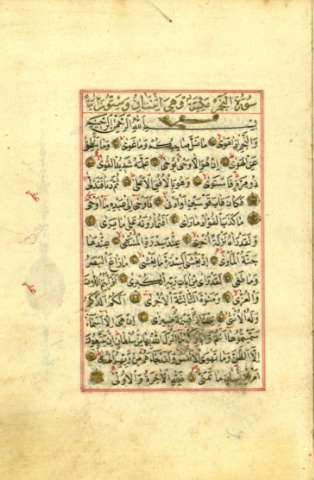 سورة النجم مكية وهي اثنتان وستون آية
بسم الله الرحمن الرحيم
والنجم إذا هوى ما ضل صاحبكم وما غوى وما ينطق
عن الهوى إن هو إلا وحي يوحى علمه شديد القوى
ذو مرة فاستوى وهو بالأفق الأعلى ثم دنا فتدلى
فكان قاب قوسين أو أدنى فأوحى إلى عبده ما أوحى
ما كذب الفؤاد ما رأى أفتمارونه على ما يرى
ولقد رآه نزلة أخرى عند سدرة المنتهى عندها
جنة المأوى إذ يغشى السدرة ما يغشى ما زاغ البصر
وما طغى لقد رأى من آيات ربه الكبرى أفرأيتم اللات
والعزى ومنوة الثالثة الأخرى ألكم الذكر
وله الأنثى تلك إذا قسمة ضيزى إن هي إلا أسماء
سميتموها أنتم وآباؤكم ما أنزل الله بها من سلطان إن يتبعون
إلا الظن وما تهوى الأنفس ولقد جاءهم من ربهم الهدى
أم للإنسان ما تمنى فلله الآخرة والأولى